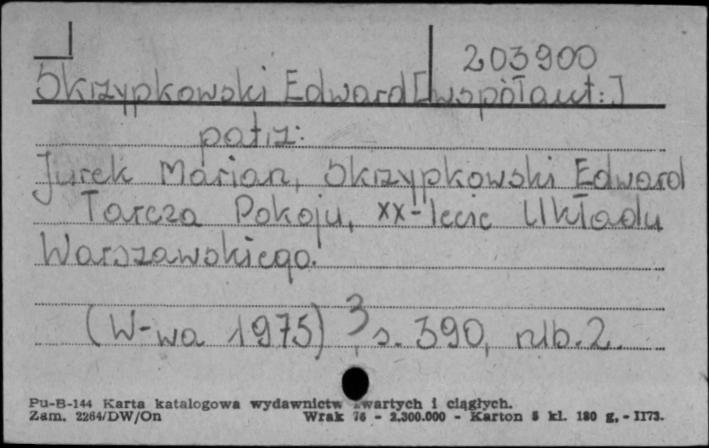 203900
Skrzypkowski Edward [współaut:]
patrz:
Jurek Marian, Skrzypkowski Edward
Tarcza Pokoju, XX-lecie Układu
Warszawskiego.
(W-wa 1975) 3, s. 390, nlb. 2.
Pu-B-144 Karta katalogowa wydawnictw zwartych i ciągłych.
Zam. 2264/DW/On Wrak 76 - 2.300.000 - Karton 5 kl. 180 g. - II73.